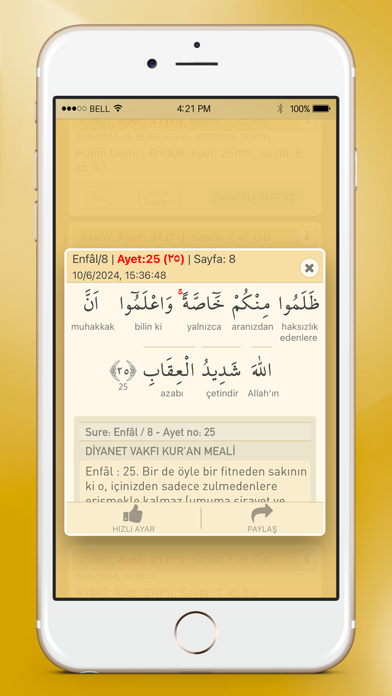 BELL 4:21 PM 100%
Hatim takibi - Enfâl/8, Ayet: 25(٢٥), Sayfa: 8,
Enfâl/8 | Ayet:25 (٢٥) | Sayfa: 8
10/6/2024, 15:36:48
ظَلَمُوا مِنْكُمْ خَاصَّةًۚ وَاعْلَمُٓوا اَنَّ
muhakkak bilin ki yalnızca aranızdan haksızlık
edenlere
اللّٰهَ شَدِيدُ الْعِقَابِ ﴿٢٥﴾
25 azabı çetindir Allah'ın
Sure: Enfâl / 8 - Ayet no: 25
DİYANET VAKFI KUR'AN MEALİ
Enfâl : 25. Bir de öyle bir fitneden sakının
ki o, içinizden sadece zulmedenlere
erişmekle kalmaz (umuma sirayet ve
HIZLI AYAR PAYLAŞ